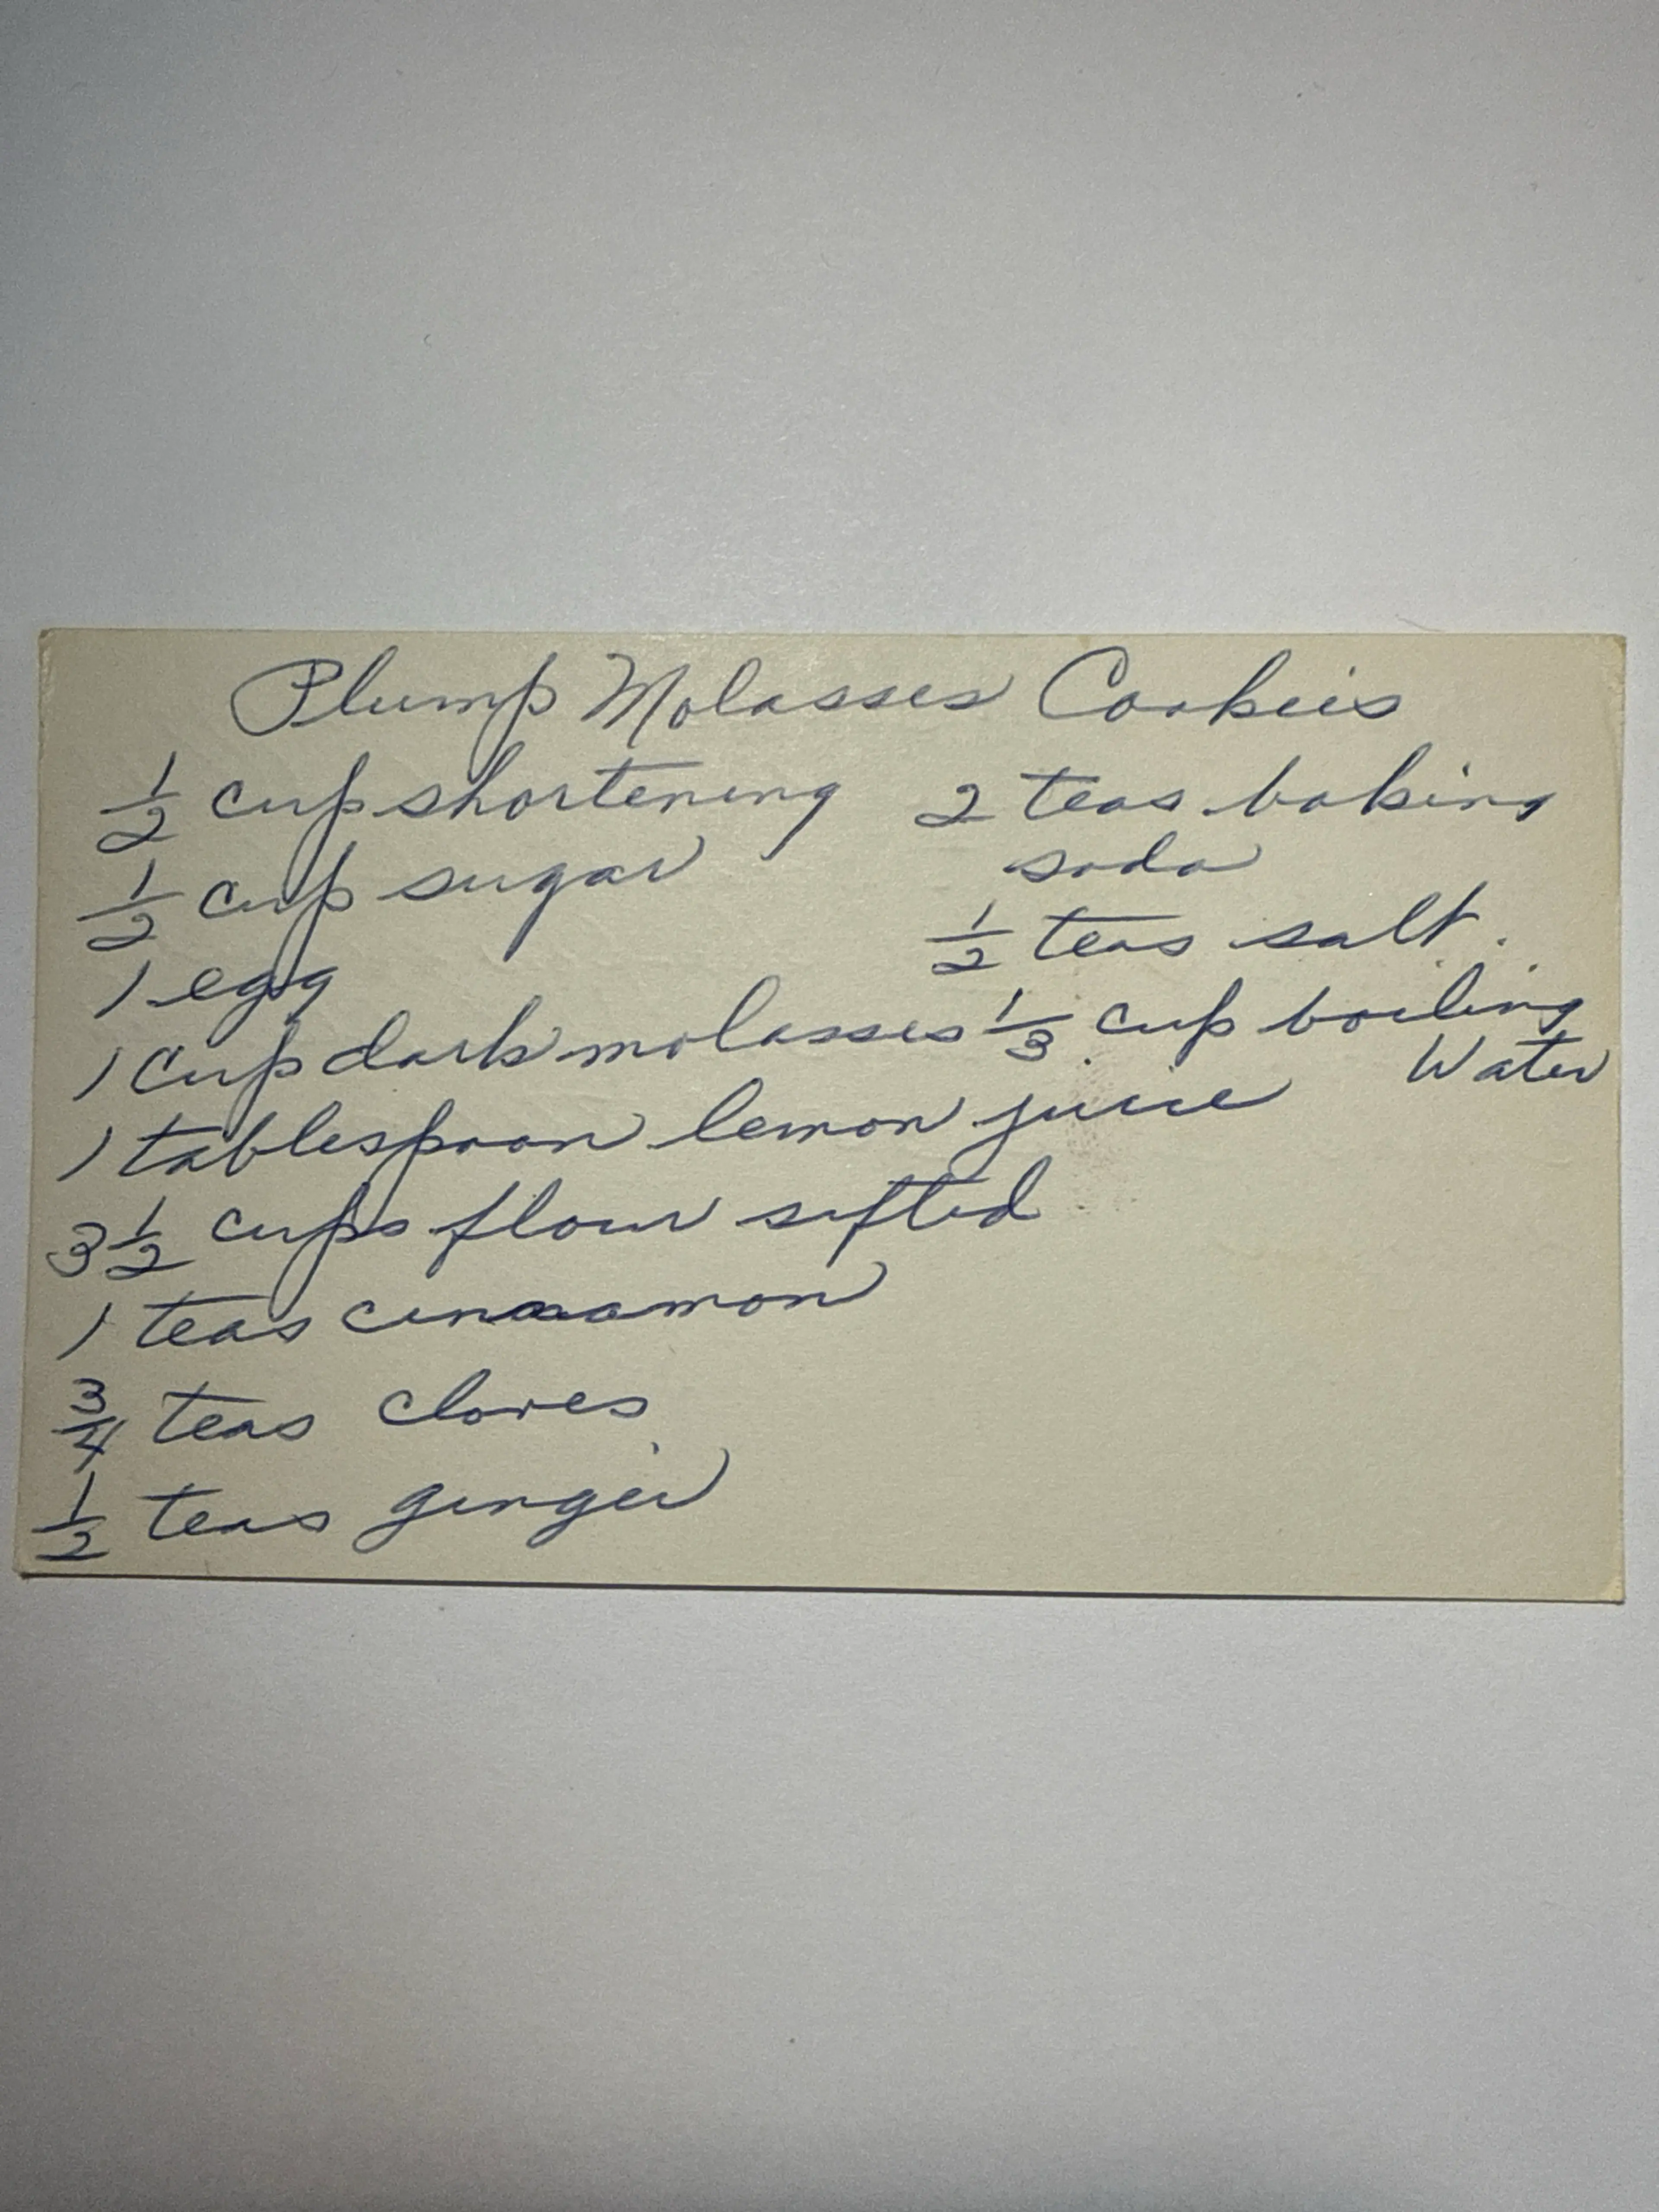 Plump Molasses Cookies
½ cup shortening
½ cup sugar
1 egg
1 cup dark molasses
1 tablespoon lemon juice
3½ cups flour sifted
1 teas cinnamon
¾ teas cloves
½ teas ginger
2 teas baking
soda
½ teas salt.
⅓ cup boiling
Water